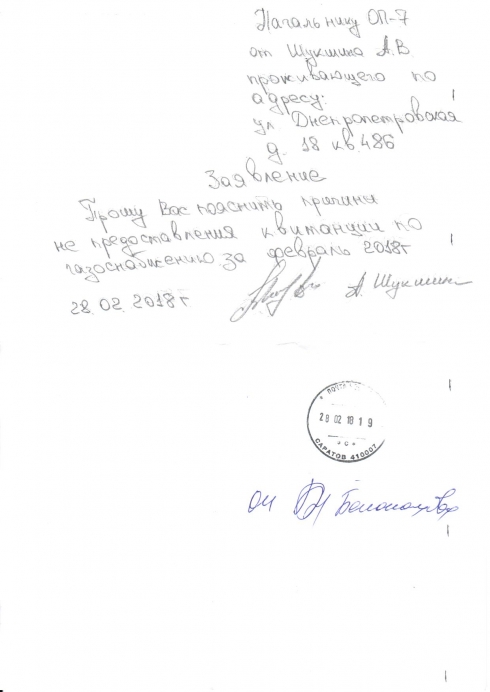 Начальнику ОП-7
от Шукшина А.В
проживающего по
адресу:
ул Днепропетровская
д. 18 кв.486
Заявление
Прошу Вас пояснить причины
не предоставления квитанции по
газоснабжению за февраль 2018г
28.02.2018г А. Шукшин
28 02 18 1 9
САРАТОВ 410007